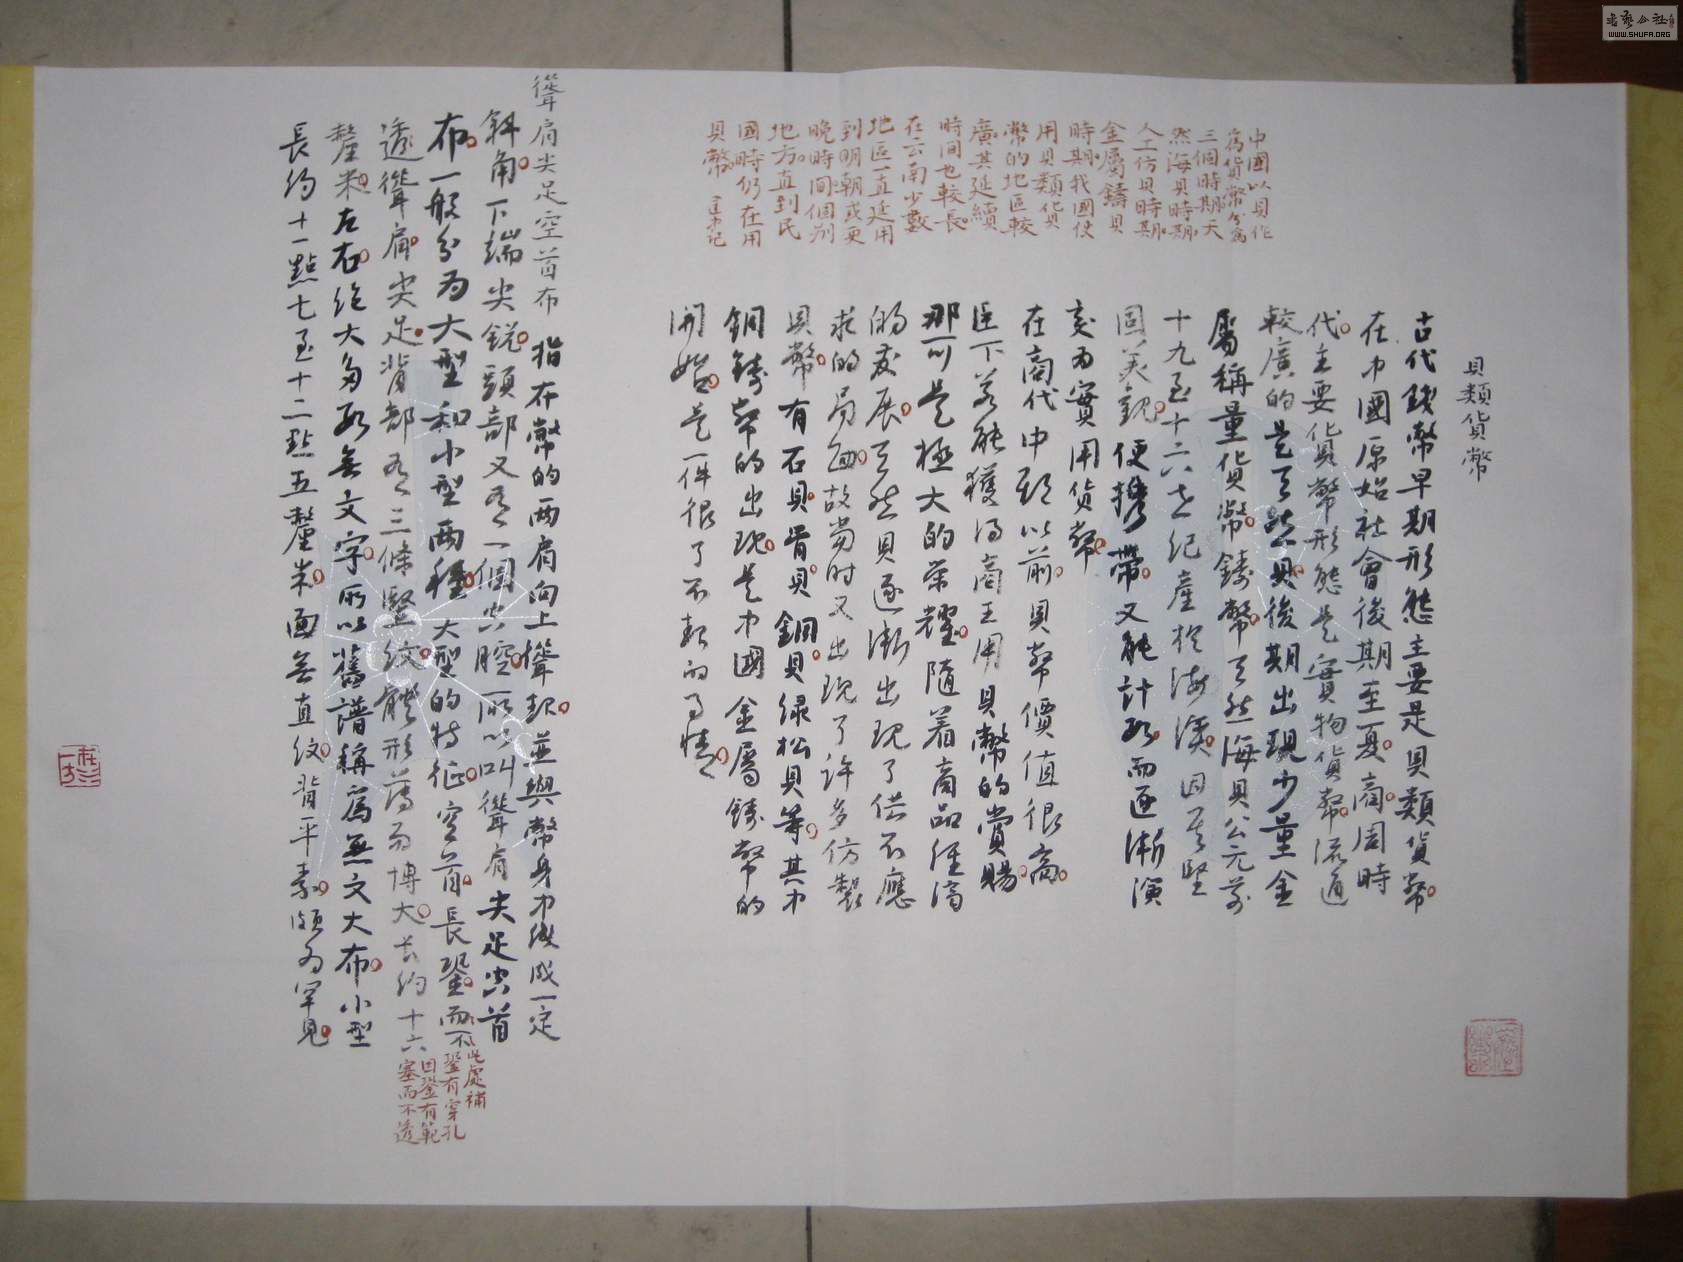 貝類貨幣
古代錢幣早期形態主要是貝類貨幣。
在中國原始社會後期至夏。商。周時
代。主要貨幣形態是實物貨幣。流通
較廣的是天然貝。後期出現少量金
屬稱量貨幣。鑄幣。天然海貝公元前
十九至十六世紀產於海濱。因其堅
固美觀。便攜帶。又能計數。而逐漸演
变为實用貨幣。
在商代中期以前。貝幣價值很高。
臣下若能獲得商王用貝幣的賞賜。
那可是極大的榮耀。隨着商品經濟
的发展。天然貝逐漸出現了供不應
求的局面。故當时又出現了許多仿製
貝幣。有石貝。骨貝。銅貝。绿松貝等。其中
銅鑄幣的出現。是中國金屬鑄幣的
開始。是一件很了不起的事情。
中國以貝作
為貨幣分為
三個時期。天
然海貝時期。
人工仿貝時期。
金屬鑄貝
時期。我國使
用貝類化貝
幣的地區較
廣。其延續
時间也較長。
在云南少數
地區一直延用
到明朝或更
晚時間。個别
地方。直到民
國時仍在用
貝幣。
聳肩尖足空首布 指在幣的两肩向上聳起。並與幣身中綫成一定
斜角。下端尖銳。頭部又有一個空腔。所以叫聳肩尖足空首
布。一般分为大型和小型两種。大型的特征。空首。長銎。而不
透。聳肩。尖足。背部有三條豎纹。體形薄而博大。长约十六
釐米左右。绝大多数無文字。所以舊譜稱爲無文大布。小型
長约十一點七至十二點五釐米。面無直纹。背平素。頗为罕見。
此處補
銎有穿孔
因銎有範
塞而不透
書藝公社
WWW.SHUFA.ORG